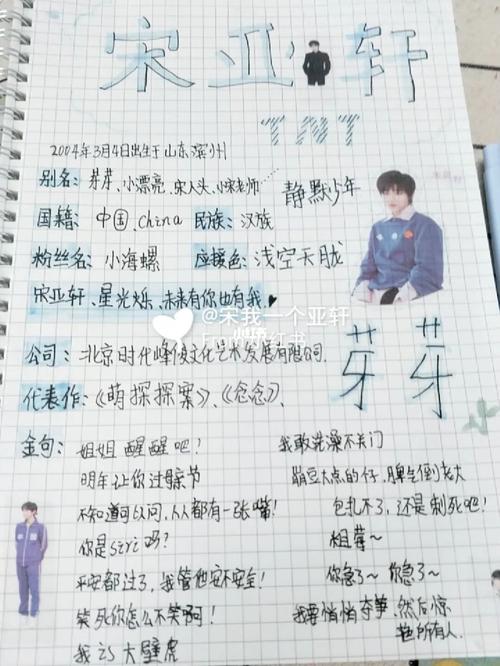 宋亚轩
TNT
2004年3月4日出生于山东滨州
别名：芽芽、小漂亮、宋人头、小宋老师… 静默少年
国籍：中国、China 民族：汉族
粉丝名：小海螺 应援色：浅空天胧
宋亚轩、星光烁、未来有你也有我
@宋我一个亚轩
小红书
公司：北京时代峰俊文化艺术发展有限公司
芽芽
代表作：《萌探探案》、《念念》、
金句：姐姐醒醒吧！
明年让你过
不知道可以问，人人都有一张嘴！
你是siri吗？
平安都过了，我管他安不安全！
笑死你怎么不笑啊！
我is大壁虎
我敢洗澡不关门
蹦豆大点的仔，脾气倒老大
包扎不了，还是制死吧！
粗莓~
你急了~ 你急了~
我要悄悄夺笋，然后惊
艳所有人.